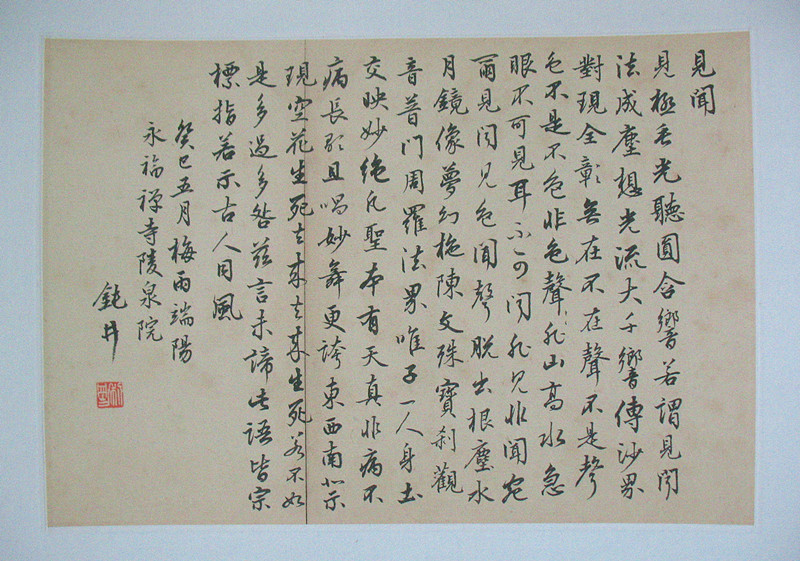 見聞
見極委光聽圓含響若謂見聞
法成塵想光流大千響傳沙界
對現全彰無在不在聲不是聲
色不是不色非色聲非山高水急
眼不可見耳不可聞非見非聞宛
爾見聞見色聞聲脫出根塵水
月鏡像夢幻施陳文殊寶刹觀
音普門周羅法界唯子一人身土
交映妙絕凡聖本有天真非病不
病長歌且唱妙舞更誇東西南北示
現空花生死去來去來生死若不如
是多過多咎茲言未諦此語皆宗
標指若示古人同風
癸巳五月梅雨端陽
永福禪寺陵泉院
鈍井